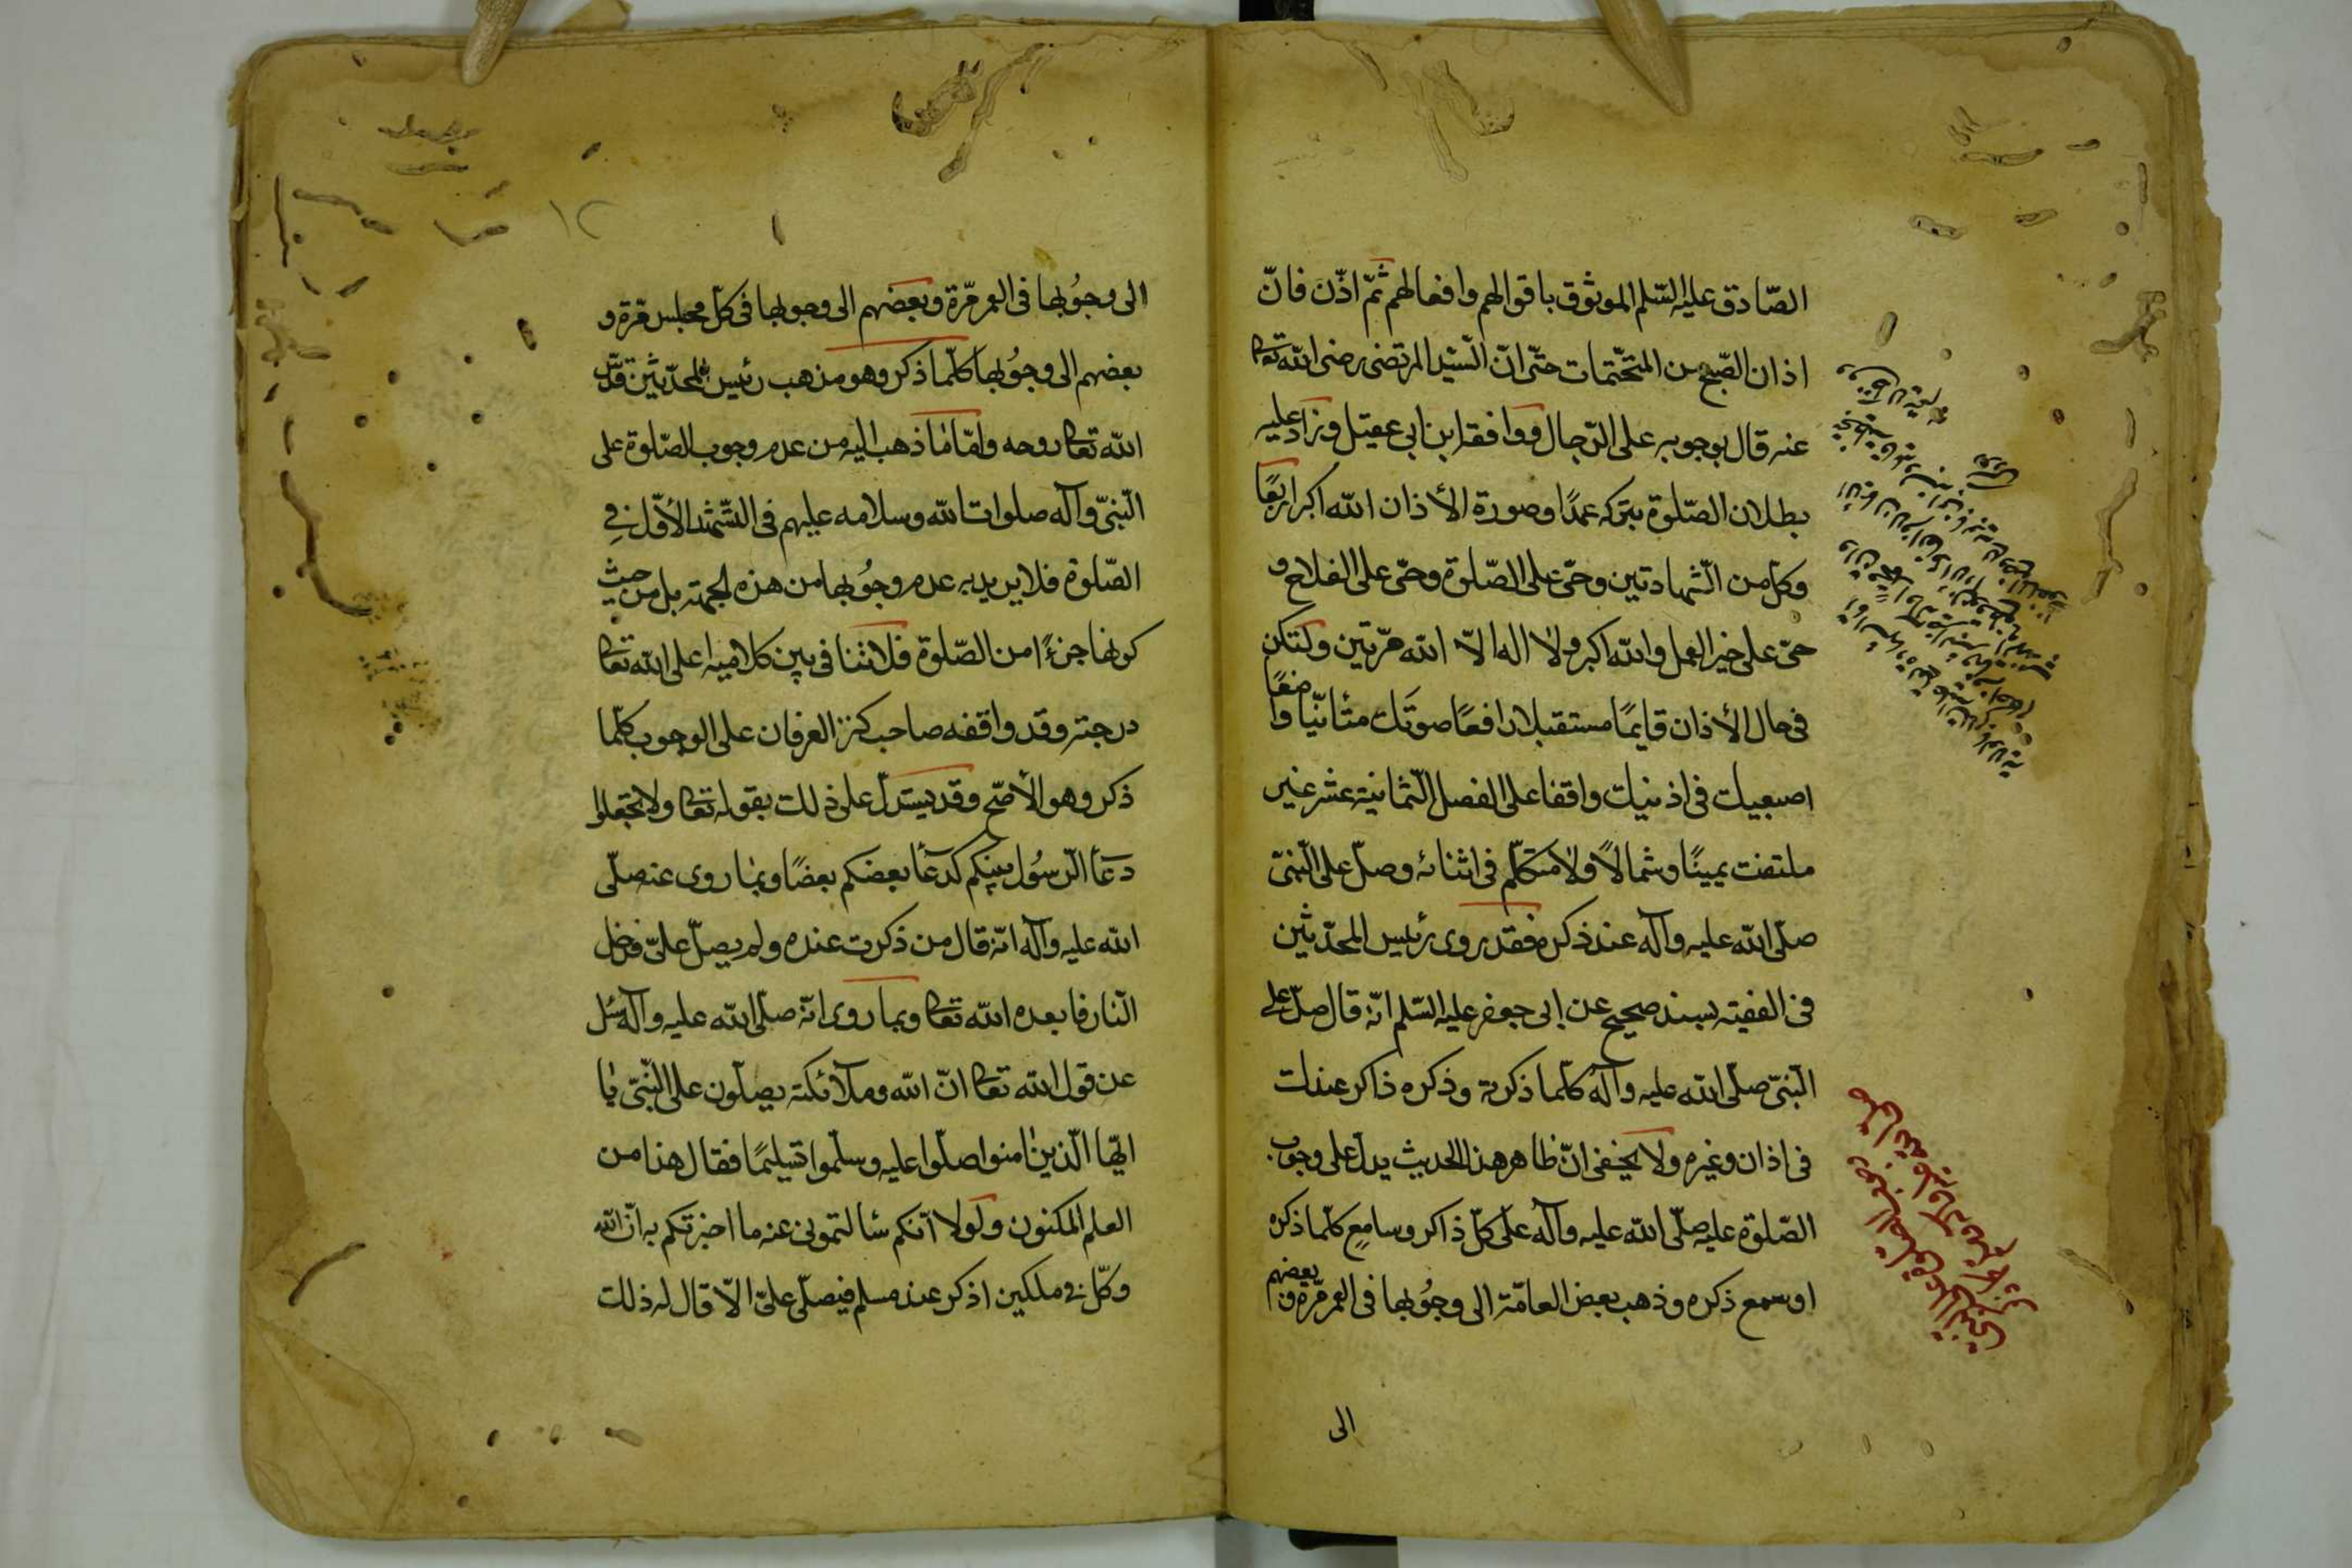 الصّادق عليه السّلم الموثوق باقوالهم وافعالهم ثمّ اذّن فانّ
اذان الصّبح من المتحّتمات حتّى انّ السّيّد المرتضى رضى الله تعا
عنه قال بوجوبه على الرّجال ووافقه ابن ابى عقيل وزاد عليه
بطلان الصّلوة بتركه عمدًا وصورة الأذان الله اكبر اربعًا
وكلّ من الشّهادتين وحىّ على الصّلوة وحىّ على الفلاح و
حىّ على خير العمل والله اكبر ولا اله الاّ الله مرّتين ولتكن
فى حال الأذان قايمًا مستقبلا رافعًا صوتك متأنّيا واضعًا
اصبعيك فى اذنيك واقفا على الفصل الثّمانية عشر غير
ملتفت يمينًا وشمالاً ولا متكلّم فى اثنائه وصلّ على النّبىّ
صلّى الله عليه وآله عند ذكره فقد روى رئيس المحدّثين
فى الفقيه بسند صحيح عن ابى جعفر عليه السّلم انّه قال صلّ على
النّبىّ صلّى الله عليه وآله كلّما ذكرته وذكره ذاكر عندك
فى اذان وغيره ولا يخفى انّ ظاهر هذا الحديث يدلّ على وجوب
الصّلوة عليه صلّى الله عليه وآله على كلّ ذاكر وسامع كلّما ذكره
او سمع ذكره وذهب بعض العامّة الى وجُوبها فى العمر مرّة وبعضهم
الى
الى وجُوبها فى العمر مرّة وبعضهم الى وجوبها فى كلّ مجلس مرّة و
بعضهم الى وجُوبها كلّما ذكر وهو مذهب رئيس المحدّثين قدّس
الله تعا روحه وامّا مٰا ذهب اليه من عدم وجوب الصّلوة على
النّبىّ وآله صلوات الله وسلامه عليهم فى التّشهّد الأوّل فى
الصّلوة فلا يريد به عدم وجُوبها من هذه الجهة بل من حيث
كونها جزءًا من الصّلوة فلا تنافى بين كلاميه اعلى الله تعا
درجته وقد وافقه صاحب كنز العرفان على الوجوب كلّما
ذكر وهو الأصّح وقد يستدلّ على ذلك بقوله تعا ولا تجعلوا
دعآ الرّسُول بينكم كدعآ بعضكم بعضًا وبما روى عنه صلّى
الله عليه وآله انّه قال من ذكرت عنده ولم يصلّ علىّ فدخل
النّار فابعده الله تعا وبما روى انّه صلّى الله عليه وآله سُئل
عن قول الله تعا انّ الله وملآئكته يصلّون على النّبىّ يا
ايّها الّذين اٰمنوا صلّوا عليه وسلّموا تسليمًا فقال هذا من
العلم المكنون ولولا انّكم سألتمونى عنه ما اخبرتكم به انّ الله
وكّل بى ملكين اذكر عند مسلم فيصلّى علىّ الاّ قال له ذلك
١٢